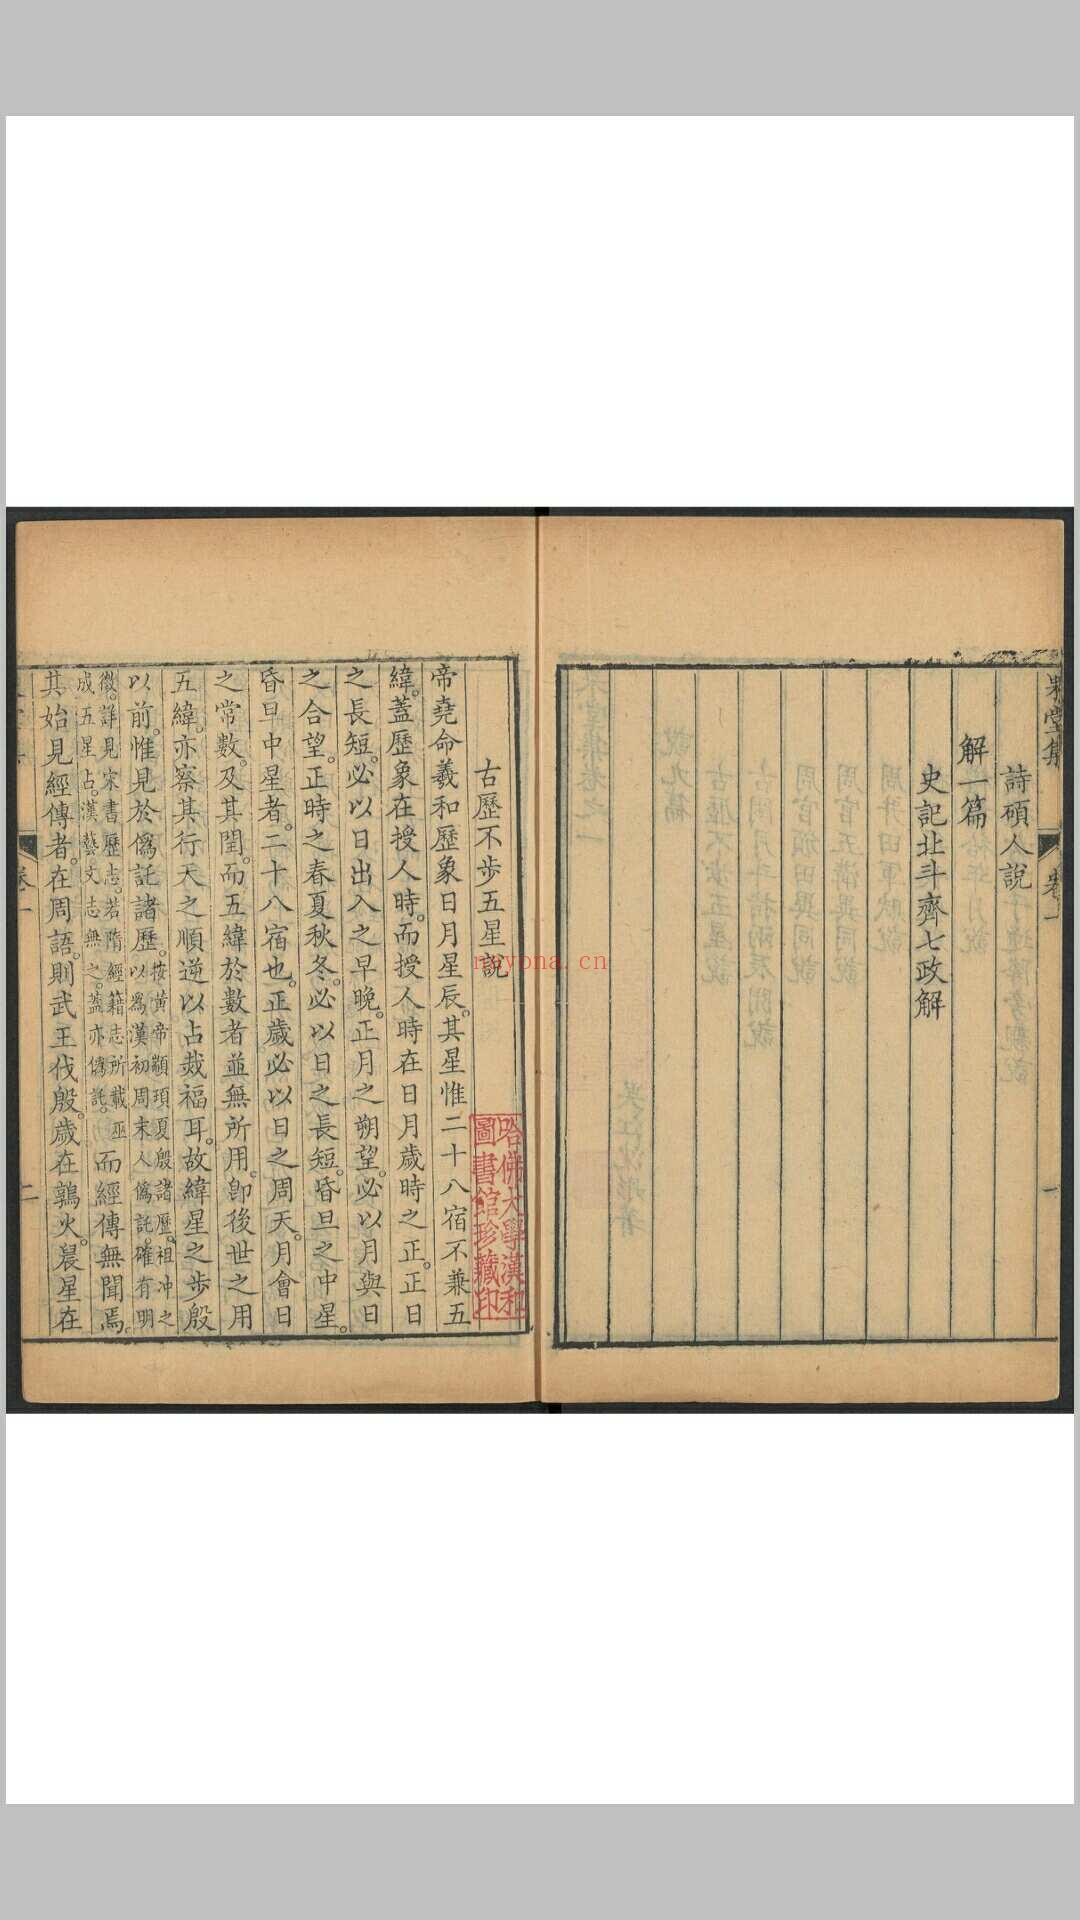 果堂集
卷一
一
詩碩人說
解一篇
史記北斗齊七政解
古歷不步五星說
帝堯命羲和歷象日月星辰。其星惟二十八宿不兼五
緯。蓋歷象在授人時。而授人時在日月歲時之正。正日
之長短。必以日出入之早晚。正月之朔望。必以月與日
之合望。正時之春夏秋冬。必以日之長短。昏旦之中星。
昏旦中星者。二十八宿也。正歲必以日之周天。月會日
之常數。及其閏。而五緯於數者並無所用。卽後世之用
五緯。亦察其行天之順逆以占烖福耳。故緯星之步殷
以前。惟見於僞託諸歷。按黃帝顓頊夏殷諸歷。祖冲之
以爲漢初周末人僞託。確有明
徵。詳見宋書歷志。若隋經籍志所載巫
成五星占。漢藝文志無之。蓋亦僞託。而經傳無聞焉。
其始見經傳者。在周語。則武王伐殷。歲在鶉火。晨星在
卷一
二
哈佛大學漢和
圖書館珍藏印
nayona.cn